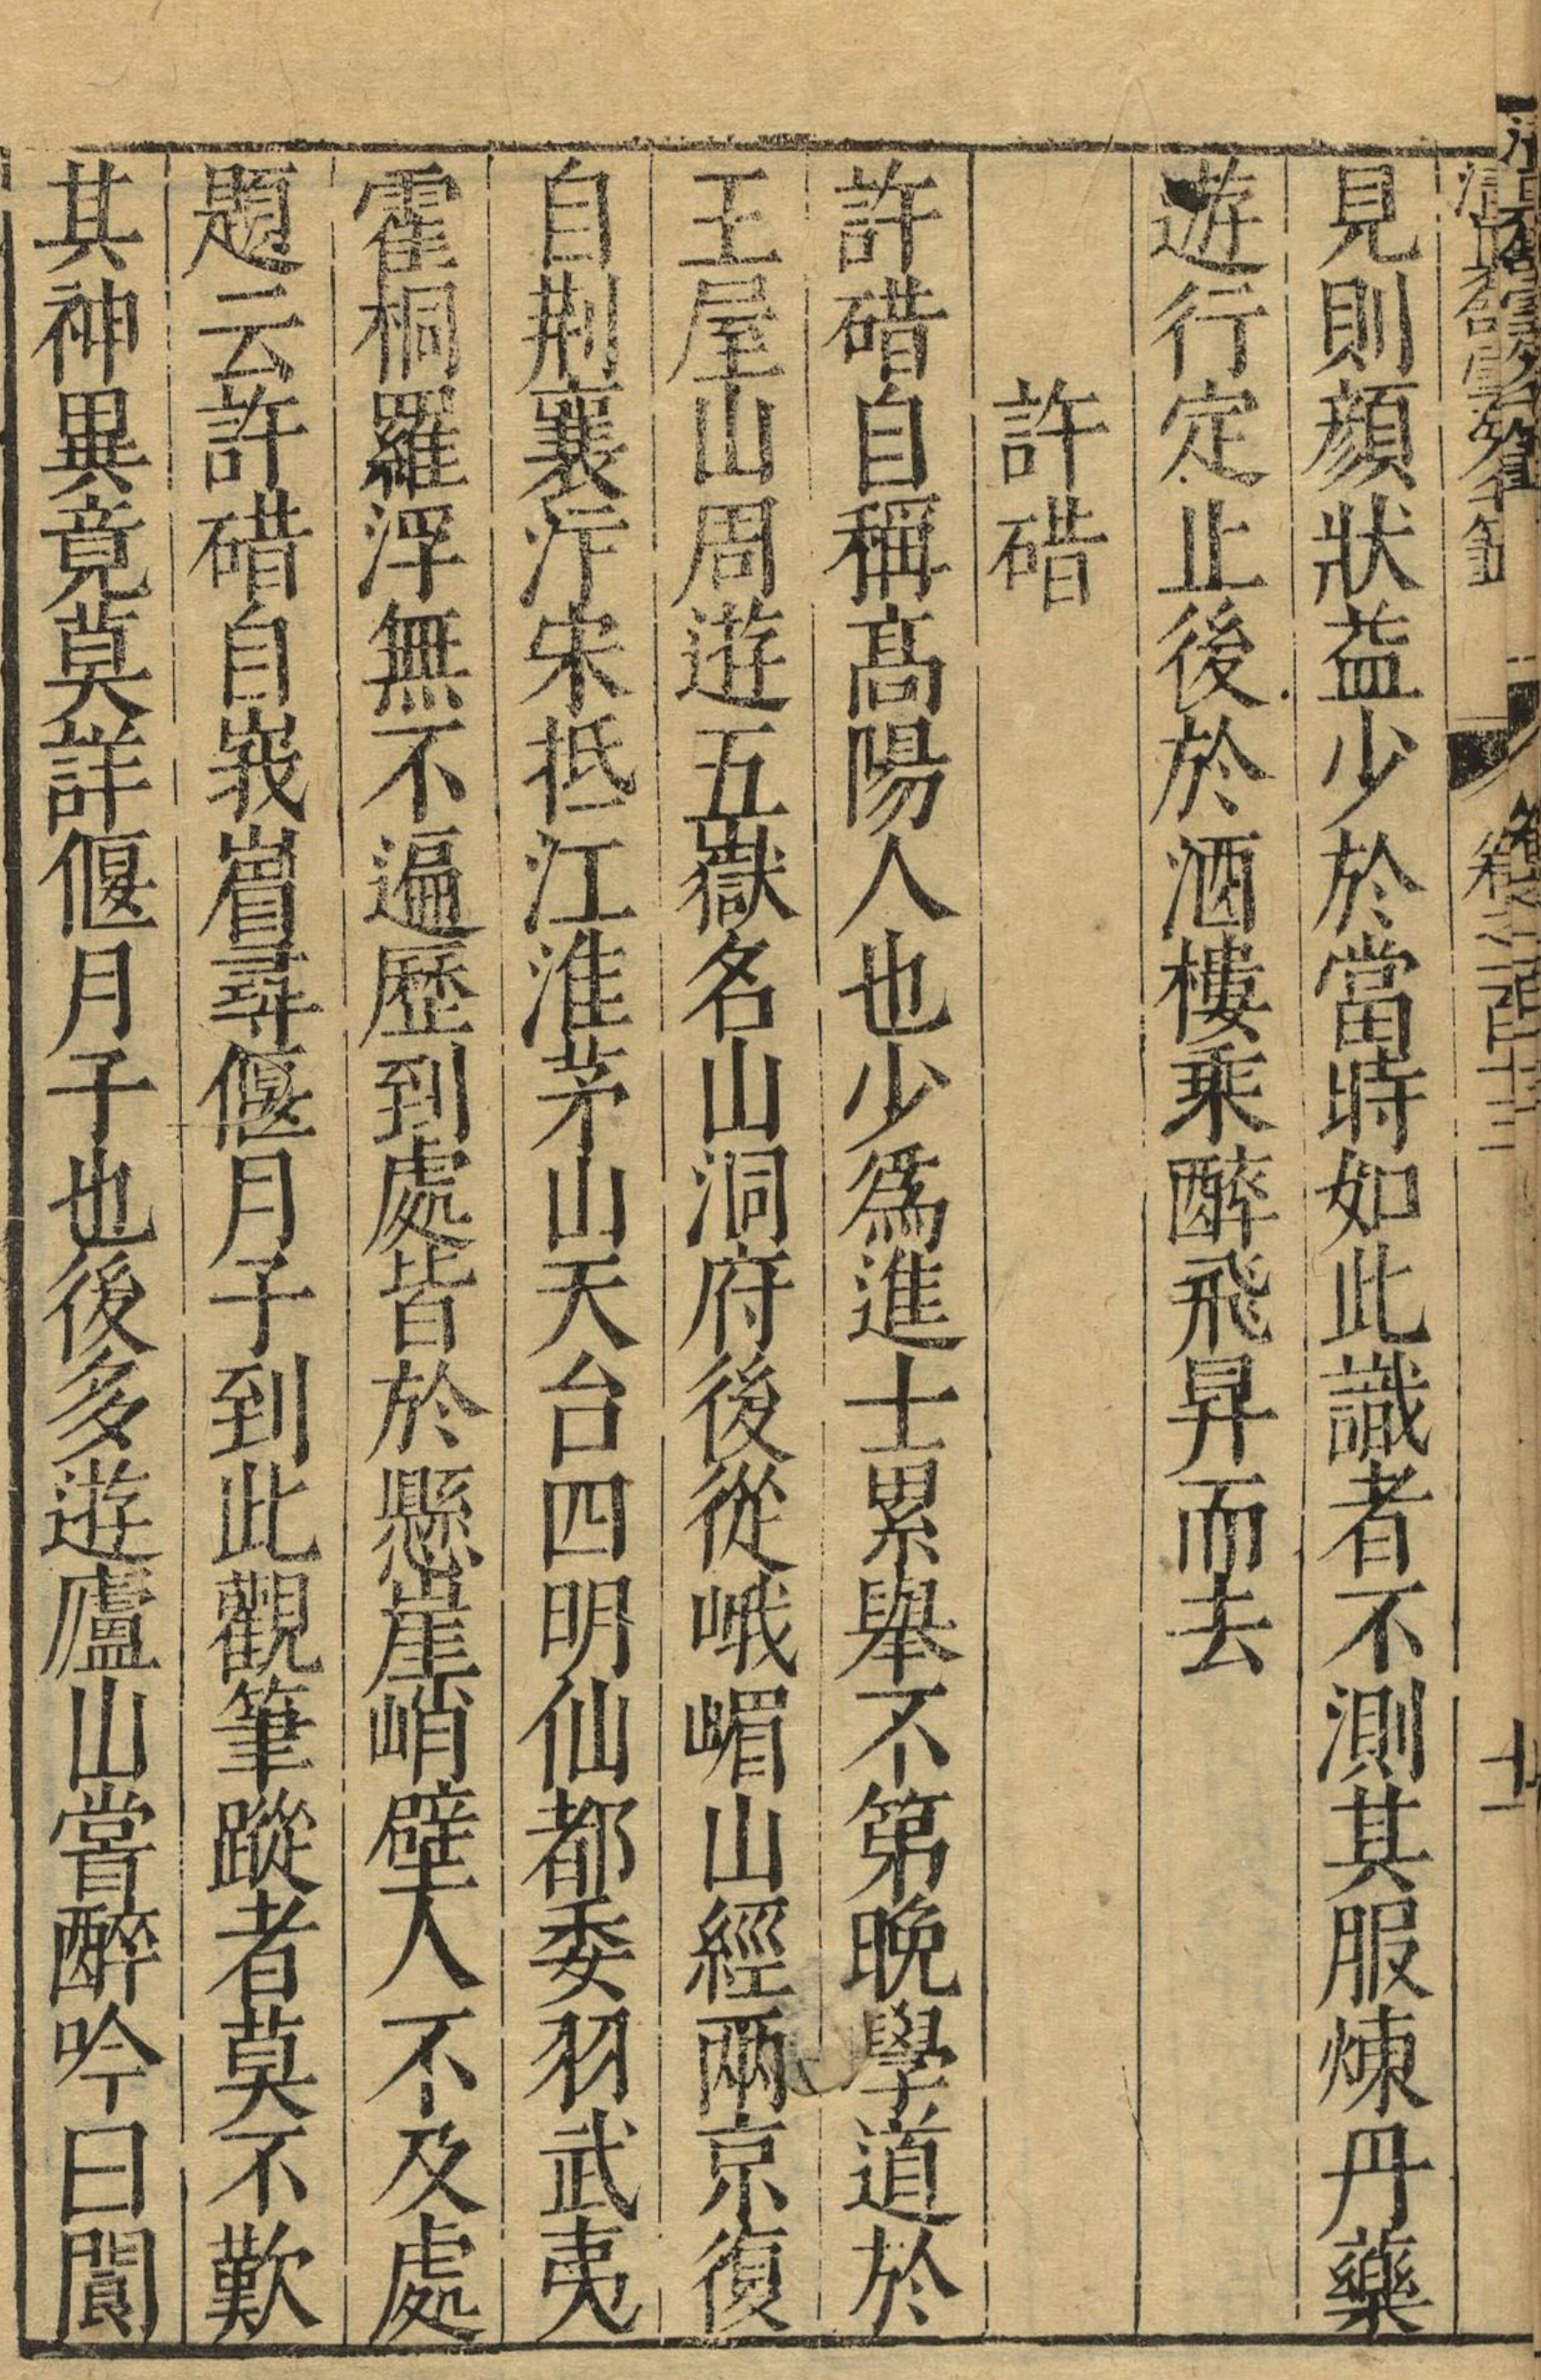 見則顔狀益少於當時如此識者不測其服煉丹藥
遊行定止後於酒樓乘醉飛昇而去
許碏
許碏自稱髙陽人也少爲進士累舉不第晚學道於
王屋山周遊五嶽名山洞府後從峨嵋山經兩京復
自荆襄汴宋抵江淮茅山天台四明仙都委羽武夷
霍桐羅浮無不遍歷到處皆於懸崖峭壁人不及處
題云許碏自峩嵋尋偃月子到此觀筆蹤者莫不歎
其神異竟莫詳偃月子也後多遊廬山嘗醉吟曰閬